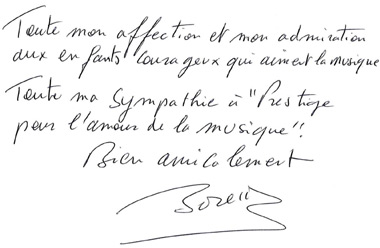 Toute mon affection et mon admiration
aux enfants courageux qui aiment la musique
Toute ma sympathie à "Prestige
pour l'amour de la musique"!
Bien amicalement